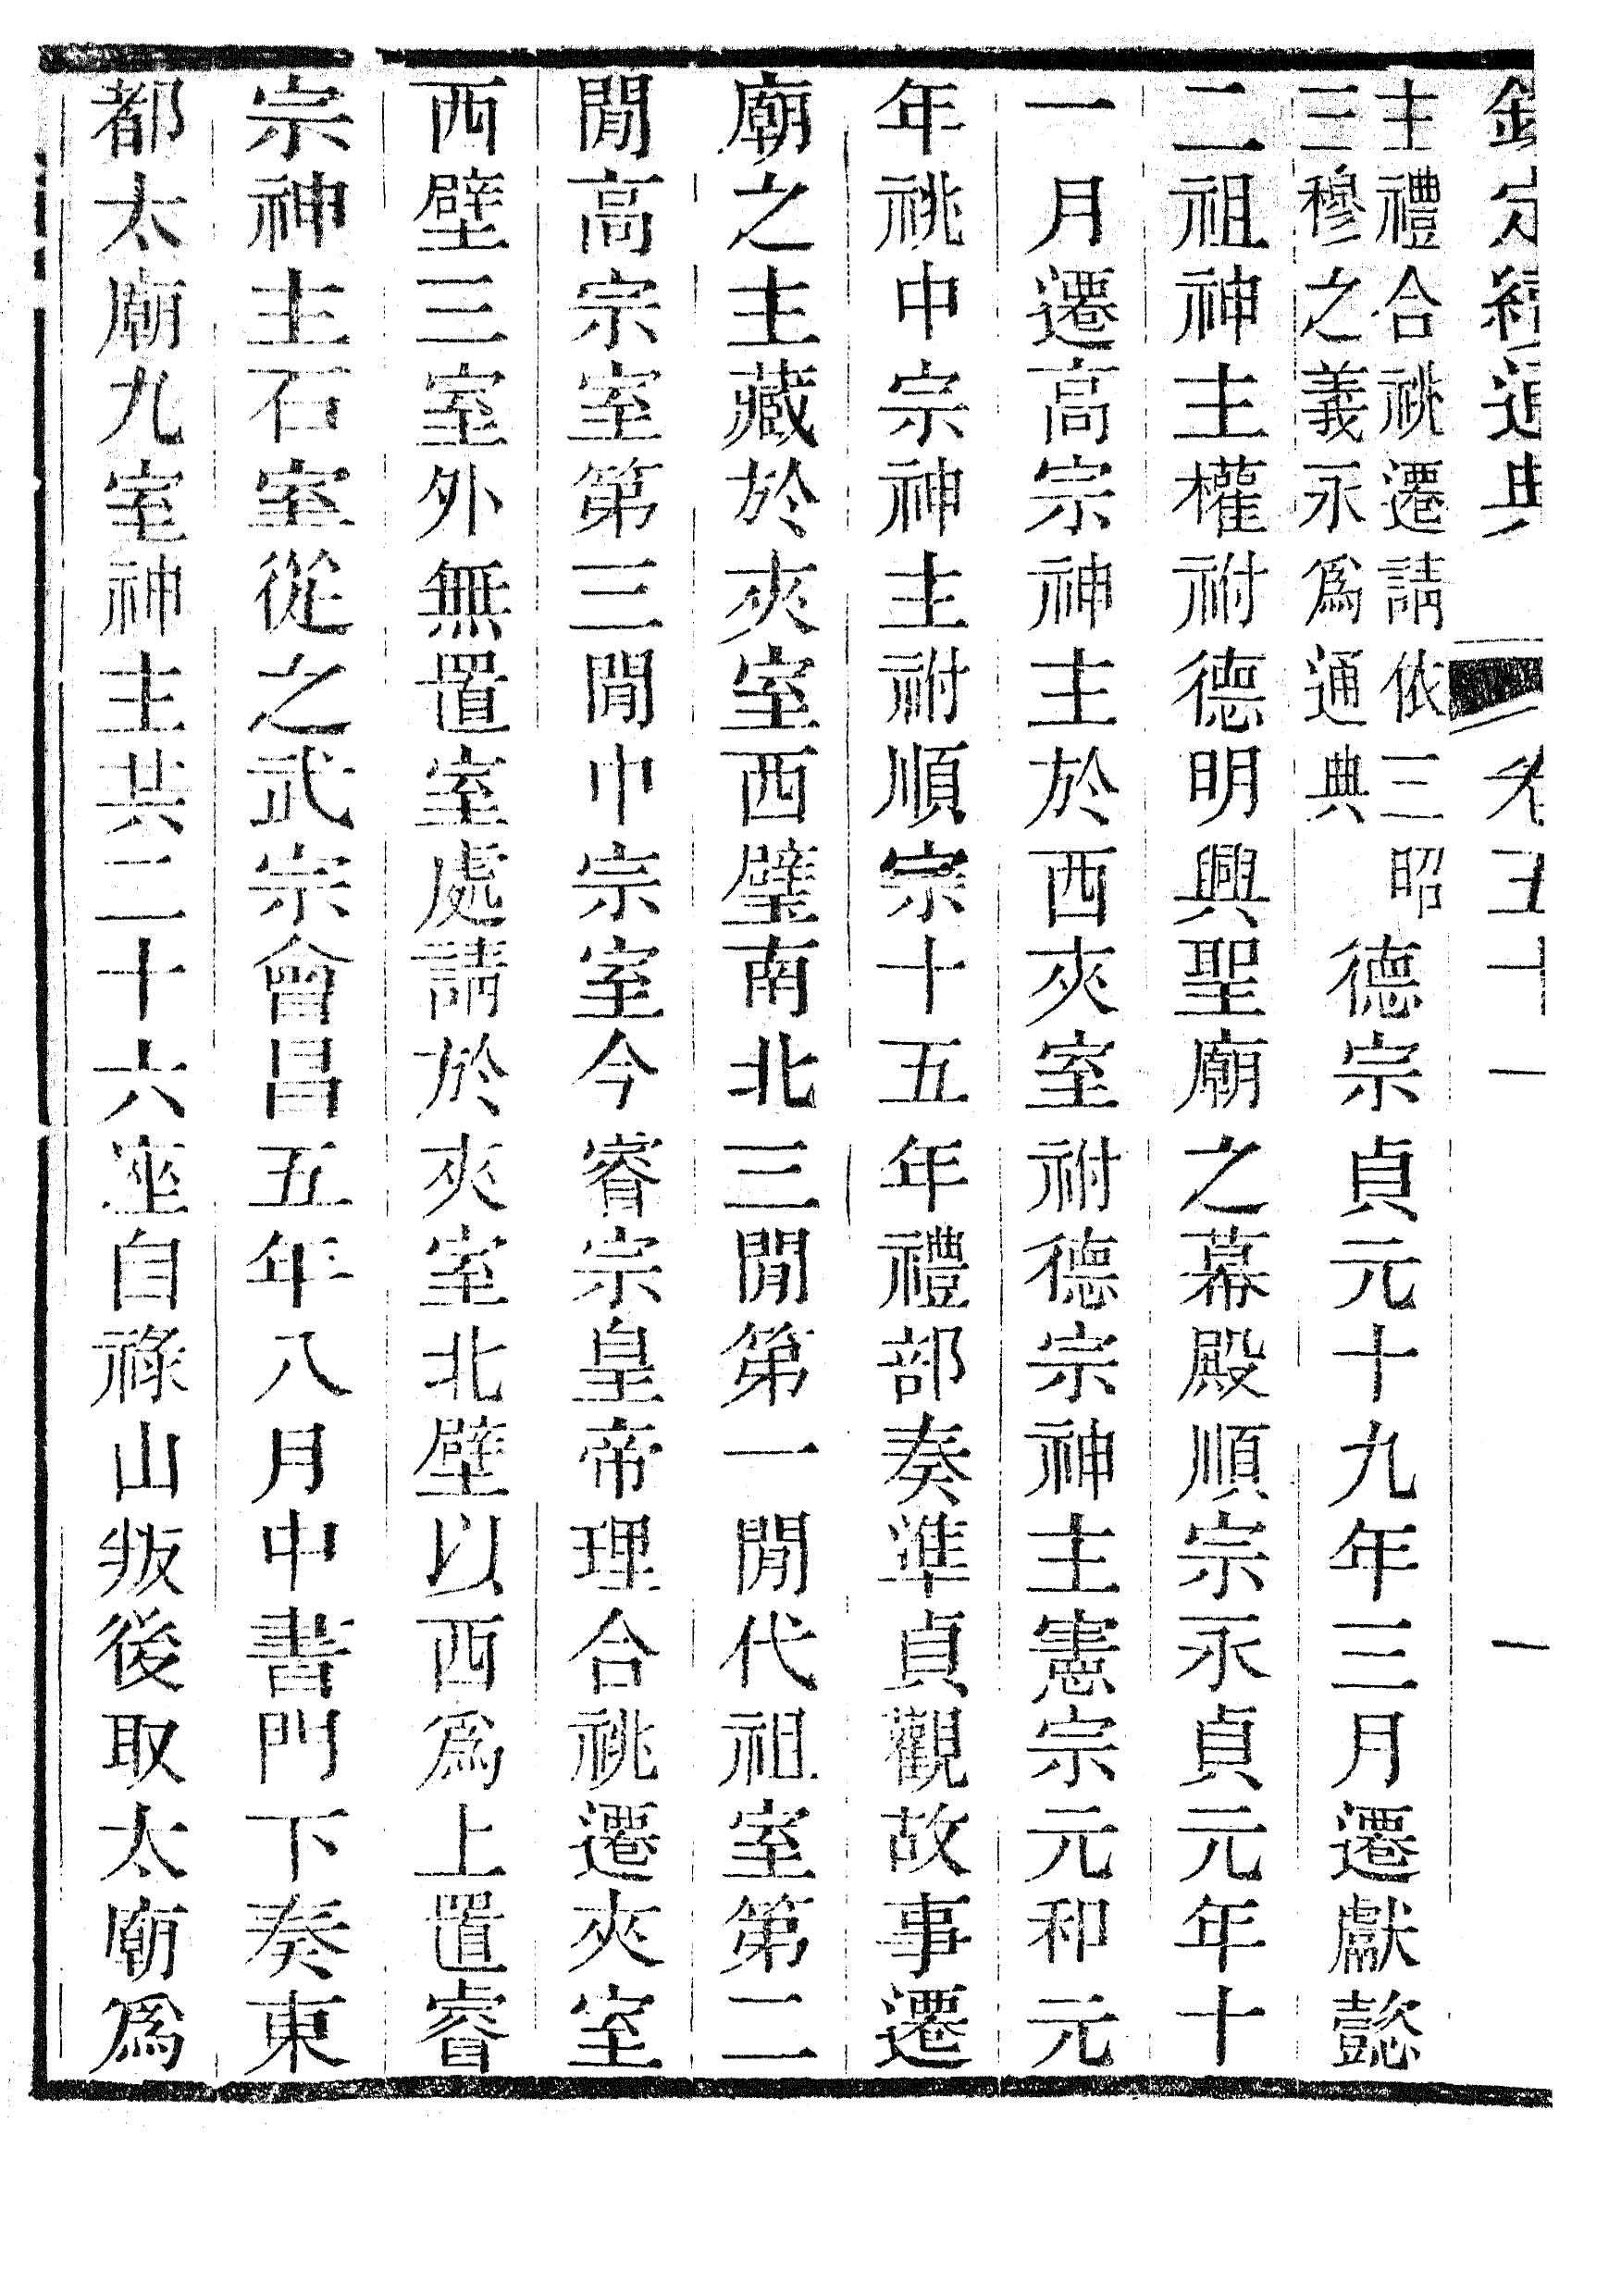 欽定續通典　卷五十一　一
主禮合祧遷請依三昭
三穆之義永爲通典
德宗貞元十九年三月遷獻懿
二祖神主權祔德明興聖廟之幕殿順宗永貞元年十
一月遷高宗神主於西夾室祔德宗神主憲宗元和元
年祧中宗神主祔順宗十五年禮部奏準貞觀故事遷
廟之主藏於夾室西壁南北三閒第一閒代祖室第二
閒高宗室第三閒中宗室今睿宗皇帝理合祧遷夾室
西壁三室外無置室處請於夾室北壁以西爲上置睿
宗神主石室從之武宗會昌五年八月中書門下奏東
都太廟九室神主共二十六座自祿山叛後取太廟爲